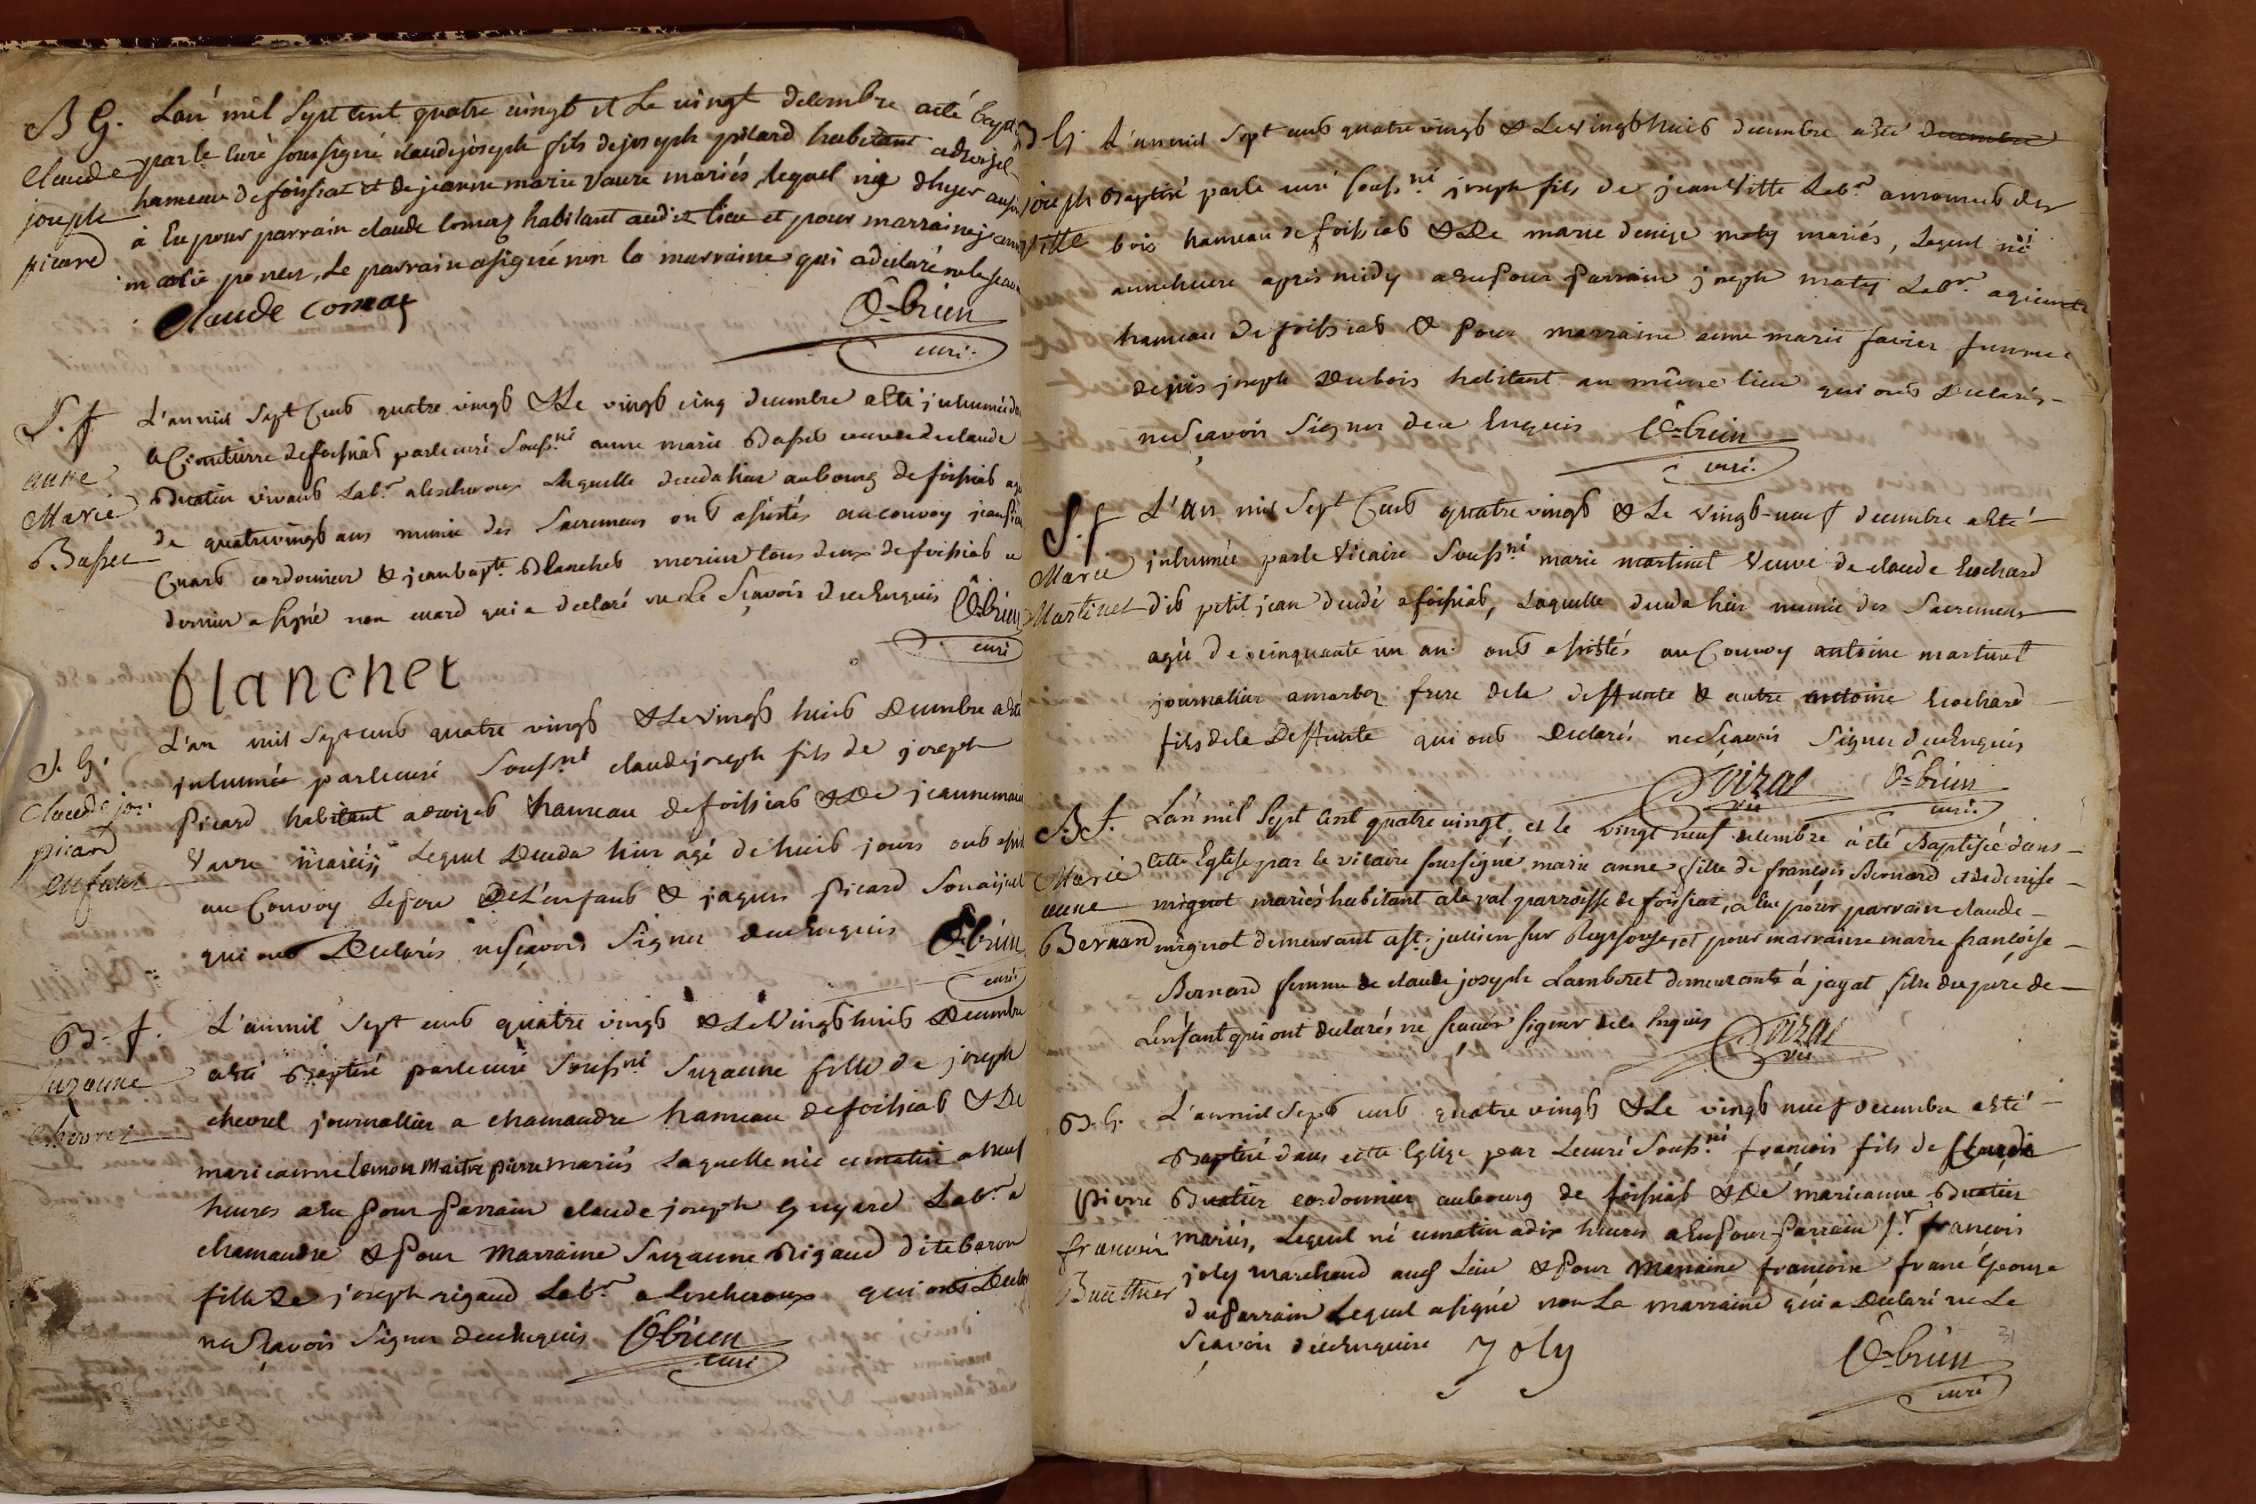 B G. L'an mil sept cent quatre vingt et le vingt decembre a eté bapt
Claude par le curé soussigné claude joseph fils de joseph picard habitant
joseph hameau de foissiat et de jeanne marie vavre mariés, lequel né d'hyer
picard à Eu pour parrain claude comaz habitant audit lieu et pour marraine jeanne
marie poncer, Le parrain a signé non la marraine qui a declaré ne le scav
claude comaz
O-brien
curé.
S. f L'an mil sept Cent quatre vingt & Le vingt cinq decembre a Eté inhumée
anne Cimetierre de foissiat par le curé Souss.né anne marie Basset veuve de claude
Marie Buatier vivant Lab.r a lescheroux Laquelle deceda hier au bourg de foissiat
Basset de quatrevingt ans munie des Sacremens ont assistés au convoy jean
Cuard cordonnier & jean bapte Blanchet mercier tous deux de foissiat
dernier a signé non cuard qui a declaré ne Le Sçavoir de ce Enquis O-brien
curé
blanchet
S. G. L'an mil Sept cent quatre vingt & Le vingt huit Decembre a Eté
inhumée par le curé Souss.né claude joseph fils de joseph
Claude jos: picard habitant hameau de foissiat & De jeanne marie
picard Vavre mariés Lequel Deceda hier agé de huit jours ont assist
enfant au Convoy Le pere De L'enfant & jaques picard Son ayeul
qui ont Declarés ne sçavoir Signer de ce Enquis O-brien
curé
B- f. L'an mil Sept cent quatre vingt & Le Vingt huit Decembre
Suzanne a Eté Baptisé par le curé Souss.né Suzanne fille de joseph
chevrel chevrel journallier a chamandre hameau de foissiat & De
marie anne Lemon Maitrepierre mariés Laquelle née ce matin a neuf
heures a Eu pour parrain claude joseph guyard Lab.r a
chamandre & pour Marraine Suzanne Rigaud dite baron
fille de joseph rigaud Lab.r a lescheroux qui ont Declar
ne Sçavoir Signer de ce Enquis O-brien
curé
B G L'an mil Sept cent quatre vingt & Le vingt huit decembre a Eté decembre
joseph Baptisé par le curé Souss.né joseph fils de jean Vitte Lab.r
Vitte bois hameau de foissiat & De marie denise maty mariés, Lequel né
avanthiere apres midy a Eu pour parrain joseph maty Lab.r
hameau de foissiat & pour marraine anne marie favier femme
de joseph Dubois habitant au même lieu qui ont Declarés
ne Sçavoir Signer de ce Enquis O-brien
curé.
S. f L'an mil Sept Cent quatre vingt & Le vingt-neuf decembre a Eté
Marie inhumée par le Vicaire Souss.né marie martinet Veuve de claude Ecochard
Martinet dit petit jean decedé a foissiat, Laquelle deceda hier munie des Sacremens
agée de cinquante un an ont assistés au Convoy antoine martinet
journalier a marboz frere de la deffunte & autre antoine Ecochard
fils de la Deffunte qui ont Declarés ne Sçavoir Signer de ce Enquis
Goizat vic O-brien curé.
B. f. L'an mil Sept Cent quatre vingt et le vingt neuf decembre à eté Baptisée dans
Marie cette Eglise par le vicaire soussigné marie anne fille de françois Bernard et de denise
anne mignot mariés habitant a la val parroisse de foissiat, a Eu pour parrain claude
Bernard mignot demeurant a st. julien sur Reyssouse, et pour marraine marie françoise
Bernard femme de claude joseph Lamberet demeurants à jayat du pere de
L'enfant qui ont declarés ne scavoir signer de ce Enquis Goizat
vic
B. G. L'an mil Sept cent quatre vingt & Le vingt neuf decembre a Eté
Baptisé dans cette Eglize par Le curé Souss.né françois fils de Claude
pierre Buatier cordonnier au bourg de foissiat & De marie anne Buatier
françois mariés, Lequel né ce matin a dix heures a Eu pour parrain S.r françois
Buathier joly marchand aud Lieu & pour Marraine françoise
du parrain Lequel a signé non La marraine qui a Declaré ne Le
Sçavoir de ce Enquise Joly
O-brien
curé
31